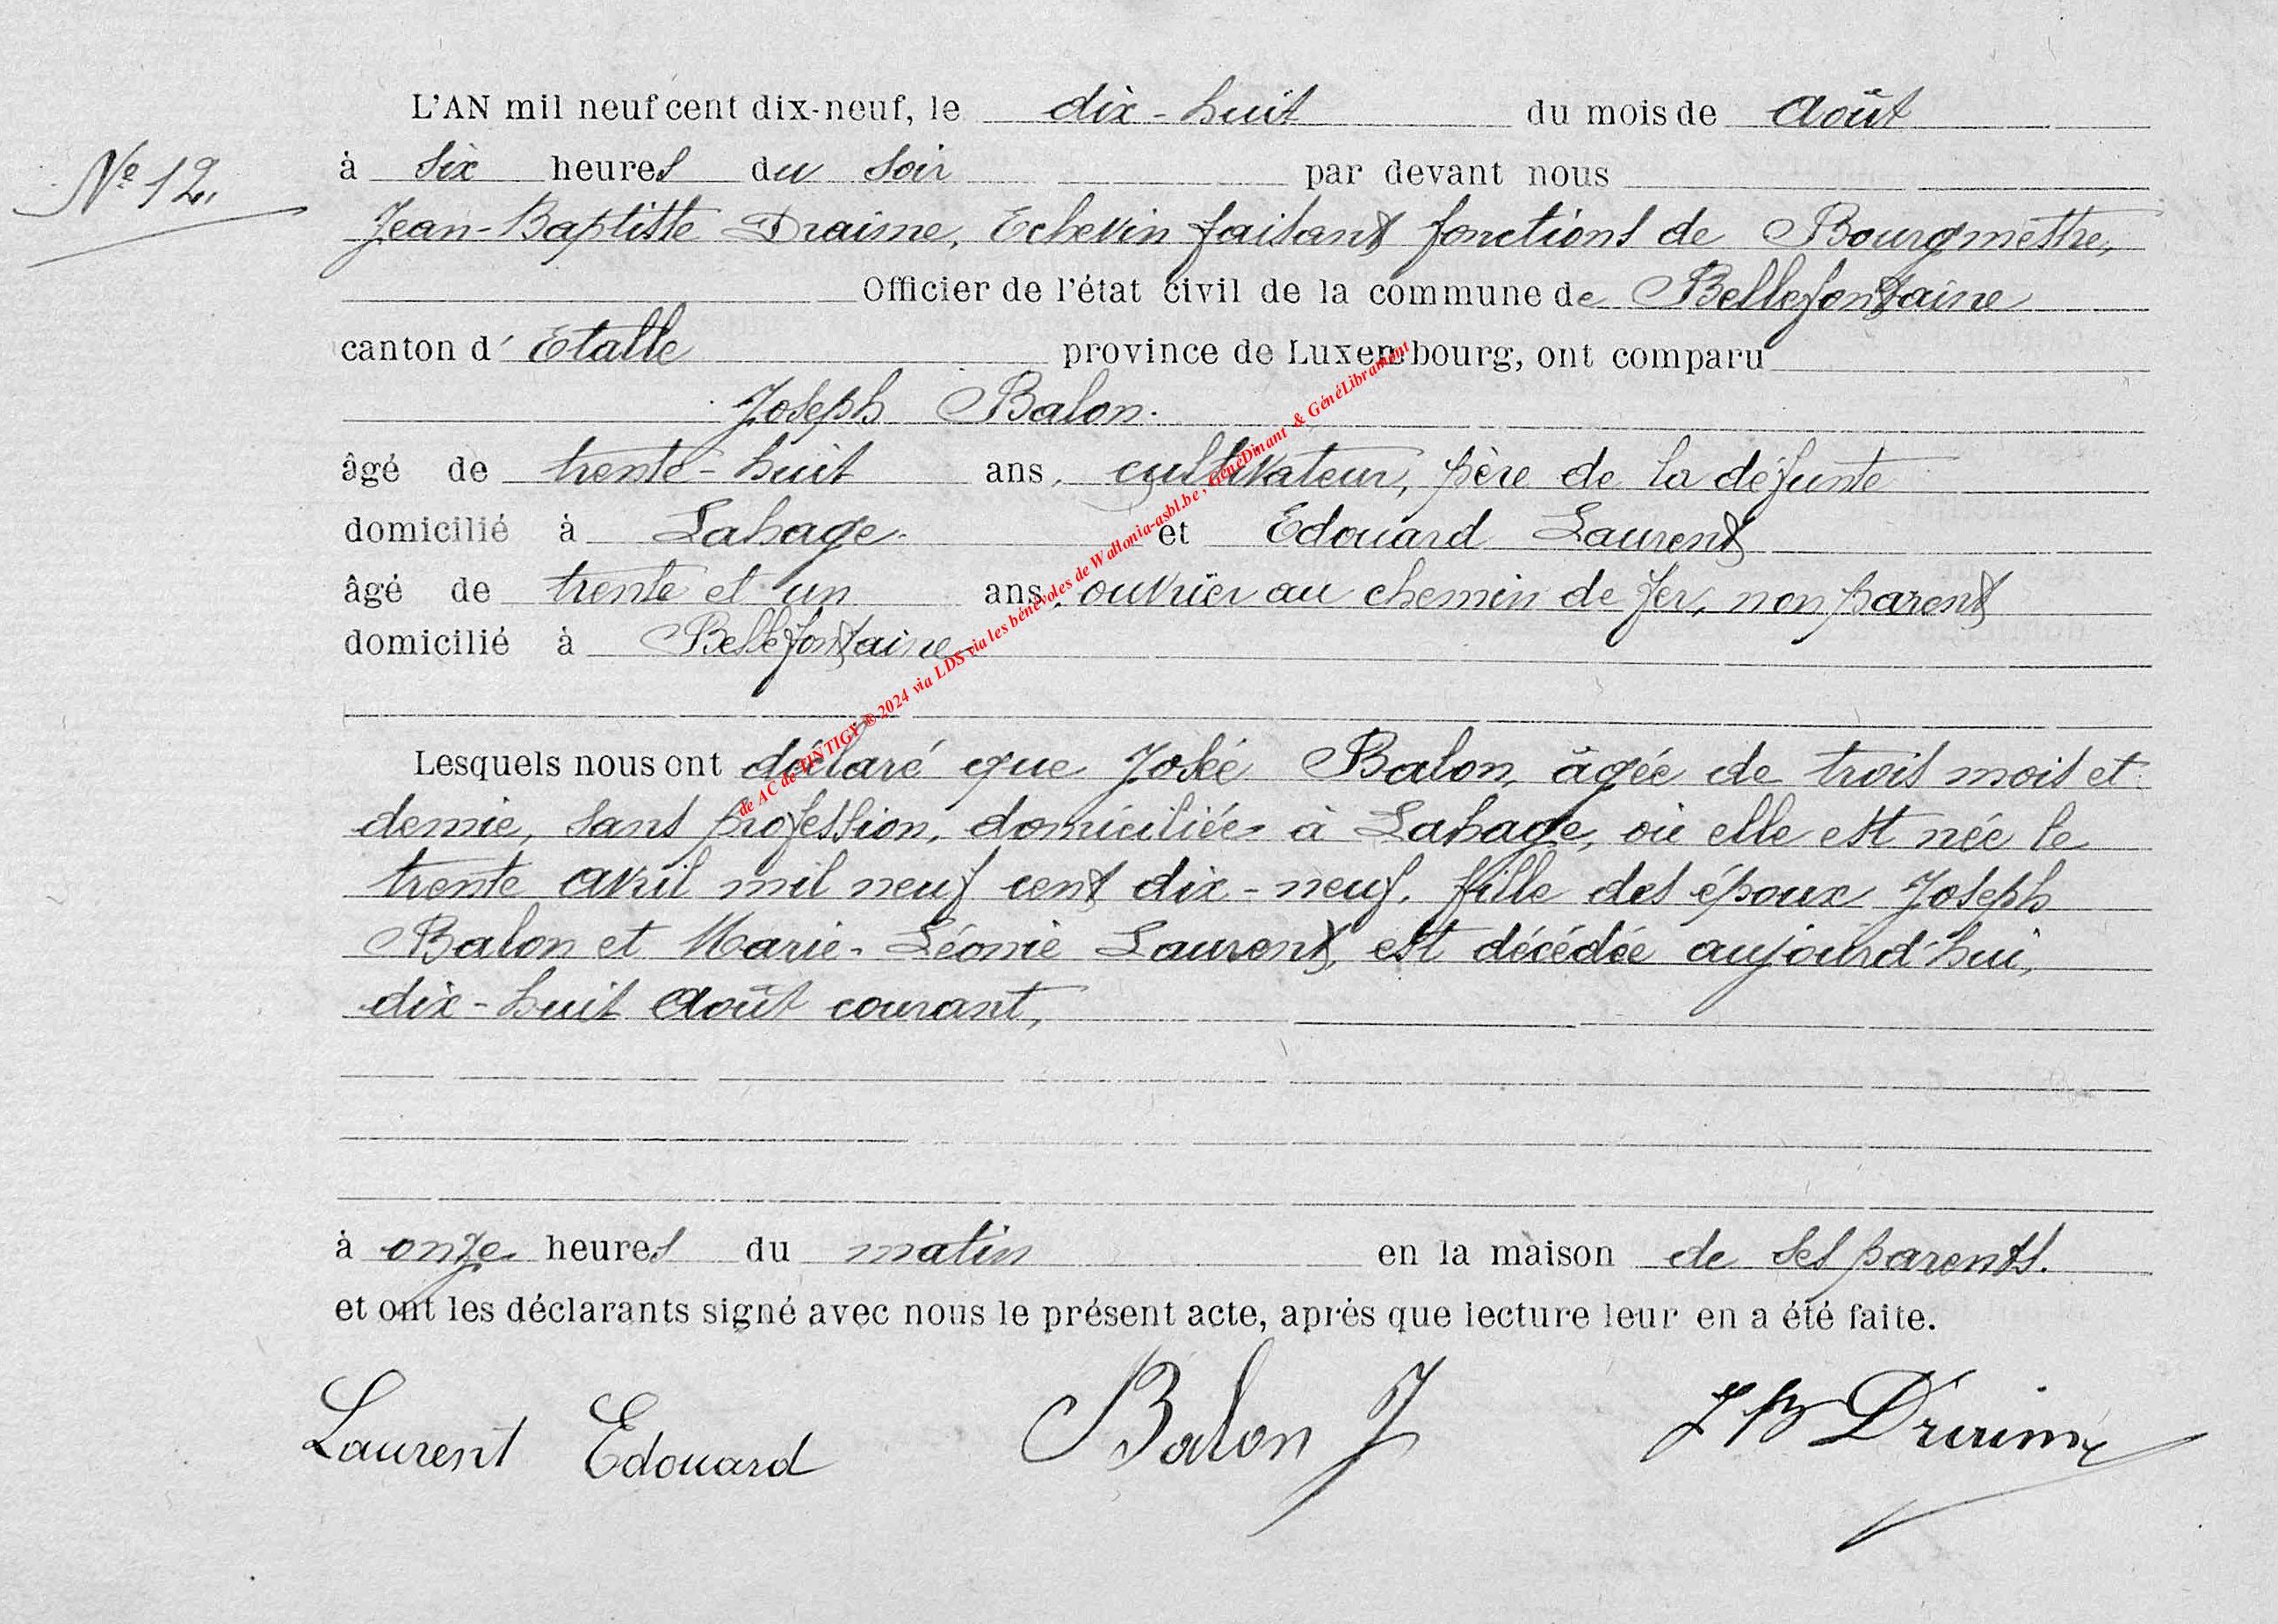 L'AN mil neuf cent dix-neuf, le dix-huit du mois de Août
Nº 12.
à six heures du soir par devant nous
Jean-Baptiste Draime, Echevin faisant fonctions de Bourgmestre,
Officier de l'état civil de la commune de Bellefontaine
canton d' Etalle province de Luxembourg, ont comparu
Joseph Balon.
âgé de trente-huit ans, cultivateur, père de la défunte
domicilié à Lahage. et Edouard Laurent
âgé de trente et un ans, ouvrier au chemin de fer, non parent
domicilié à Bellefontaine
Lesquels nous ont déclaré que Josée Balon, âgée de trois mois et
demie, sans profession, domiciliée à Lahage, où elle est née le
trente avril mil neuf cent dix-neuf, fille des époux Joseph
Balon et Marie-Léonie Laurent, est décédée aujourd'hui,
dix-huit Août courant,
à onze heures du matin en la maison de ses parents.
et ont les déclarants signé avec nous le présent acte, après que lecture leur en a été faite.
Laurent Edouard Balon J J B Draime
de AC de TINTIGY ® 2024 via LDS via les bénévoles de Wallonia-asbl.be, GénéDinant & GénéLibramont